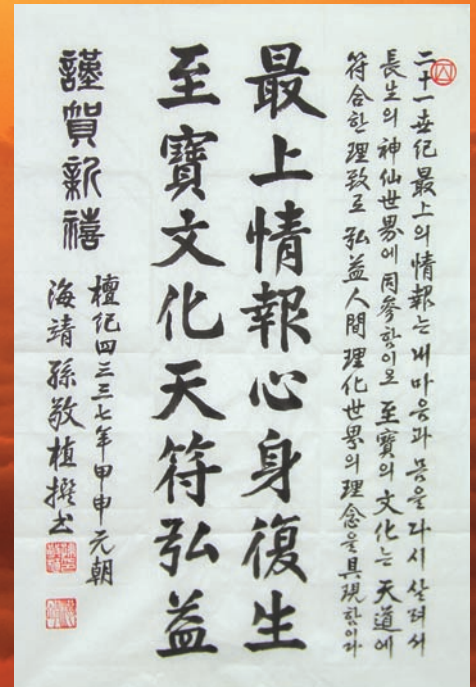 二十一世紀 最上의 情報는 내 마음과 몸을 다시 살려서
長生의 神仙世界에 同參함이오 至寶의 文化는 天道에
符合한 理致로 弘益人間 理化世界의 理念을 具現함이라
最上情報心身復生
至寶文化天符弘益
謹賀新禧
檀紀四三三七年甲申元朝
海靖 孫敬植 撰書